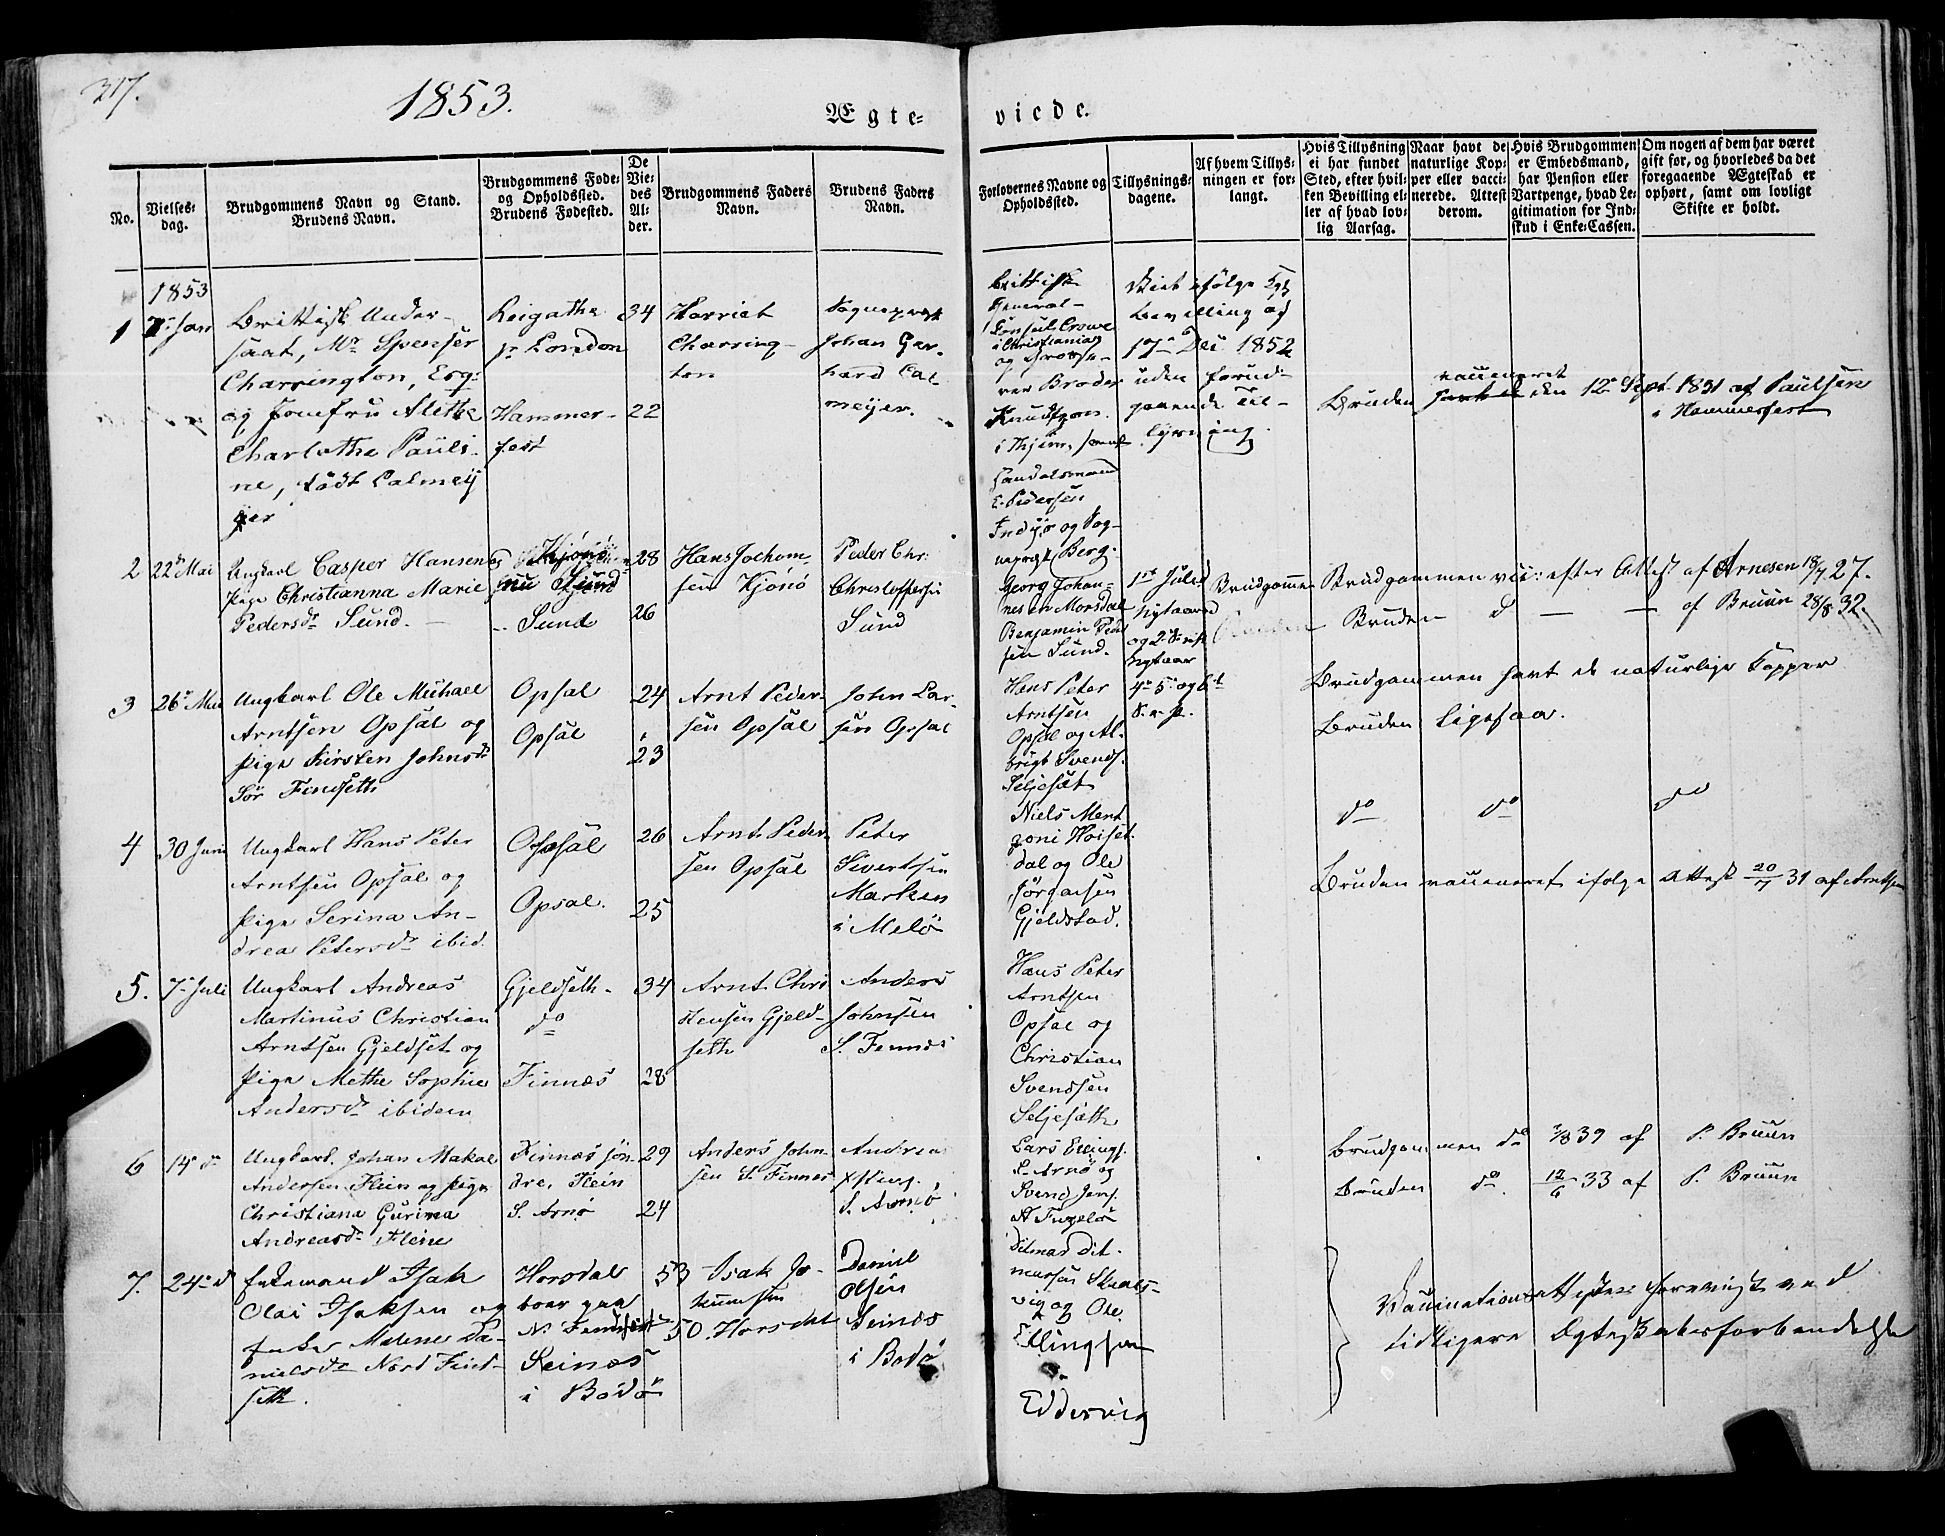 317.
1853.
Ægte=
viede.
No.
Vielses=
dag.
Brudgommens Navn og Stand.
Brudens Navn.
Brudgommens Føde=
og Opholdssted.
Brudens Fødested.
De
Vie=
des
Al=
der.
Brudgommens Faders
Navn.
Brudens Faders
Navn.
Forlovernes Navne og
Opholdssted.
Tillysnings=
dagene.
Af hvem Tillys=
ningen er for=
langt.
Hvis Tillysning
ei har fundet
Sted, efter hvil=
ken Bevilling el=
ler af hvad lov=
lig Aarsag.
Naar havt de
naturlige Kop=
per eller vacci=
nerede. Attest
derom.
Hvis Brudgommen
er Embedsmand,
har Pension eller
Vartpenge, hvad Le=
gitimation for Ind=
skud i Enke=Cassen.
Om nogen af dem har været
gift før, og hvorledes da det
foregaaende Ægteskab er
ophørt, samt om lovligt
Skifte er holdt.
1853
1
7 Jan
Brittisk Under-
saat, Mr Spenser
Charrington, Esq:
og Jomfru Alethe
Charlothe Pauli-
ne, född Calmeij
jer
Reigathe
pr London
Hammer-
fest
34
22
Harriet
Charring-
ton
Sognepræst
Johan Ger-
hard Cal-
meijer.
Brittisk
General-
Consul Crowe
i Christiania
og Grosse-
rer Broder
Knudtzon
i Thjem, samt
Handelsmand
E. Pedersen
Indijr og Sog-
nepræst Berg.
Viet ifölge Kgl
Bevilling af
17de Dec 1852
uden forud-
gaaende Til-
lysning.
Bruden vaccineret den 12te Sept. 1831 af Paulsen
i Hammerfest
2
22de Mai
Ungkarl Casper Hansen
Pige Christianna Marie
Pedersdr Sund.
Kjönö
Sund
28
26
Hans Jochom-
sen Kjönö
Peder Chr:
Christoffersen
Sund
Georg Johan-
nesen Morsdal
Benjamin Peder
sen Sund.
1ste Juled
Nytaarsd
og 2 S. e.
Nytaar
Brudgommen
Brudgommen vac: efter Attest af Arnesen 18/7 27.
Bruden d — — af Bruun 28/8 32.
3
26de Mai
Ungkarl Ole Michael
Arntsen Opsal og
Pige Kirsten Johnsdr
Sör Findseth
Opsal
Opsal
24
23
Arnt Peder-
sen Opsal
John Lar-
sen Opsal
Hans Peter
Arntsen
Opsal og Al-
brigt Svends.
Seljesæt
4de 5te og 6te
S. e. p.
Brudgommen havt de naturlige Kopper
Bruden ligesaa.
4
30 Juni
Ungkarl Hans Peter
Arntsen Opsal og
Pige Serina An-
drea Petersdr ibid.
Opsal
Opsal.
26
25
Arnt Peder
sen Opsal
Peter
Sivertsen
Marken
i Melö
Niels Ment
zoni Höiset-
dal og Ole
Jörgensen
Gjeldstad.
do do do
Bruden vaccineret ifölge Attest 20/7 31 af Arntsen
5.
7de Juli
Ungkarl Andreas
Martinus Christian
Arntsen Gjeldset og
Pige Methe Sophie
Andersdr ibidem
Gjeldseth.
do
Finnæs
34
28
Arnt Chri
stensen Gjeld-
seth
Anders
Johnsen
S. Finnæs
Hans Peter
Arntsen
Opsal og
Christian
Svendsen
Seljesæth
6
14de do
Ungkarl. Johan Makal
Andersen Flein og Pige
Christiana Gurina
Andreasdr Fleine
Finnæs sön-
dre, Flein
S. Arnö
29
24
Anders John-
sen S. Finnes
Andreas
S. Arnö
Lars Ellings.
S. Arnö og
Svend Jens.
N Fugelö
Brudgommen do 7/8 39 af P. Bruun
Bruden do. 12/6 33 af P. Bruun
7.
24de d
Enkemand Isak
Olai Isaksen og
Enke Malene Da-
nielsdr Nord Find-
seth.
Horsdal
boer paa
N. Findseth
Seines
i Bodö
53
50
Isak Jo-
kumsen
Horsdal
Daniel
Olsen
Seines
i Bodö
Ditmar Dit-
marsen Skaals-
vig og Ole
Ellingsen
Eddervig
Vaccinationsattester forevist ved
tidligere Ægteskabsforbindelse